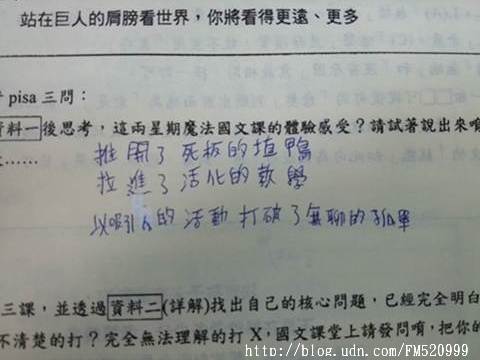 站在巨人的肩膀看世界，你將看得更遠、更多
pisa 三問：
資料一後思考，這兩星期魔法國文課的體驗感受？請試著說出來唷
……
推開了死板的填鴨
拉進了活化的教學
以吸引人的活動打破了無聊的孤單
三課，並透過資料二(詳解)找出自己的核心問題，已經完全明白
不清楚的打？完全無法理解的打 X，國文課堂上請發問唷，把你的
http://blog.udn.com/FM520999